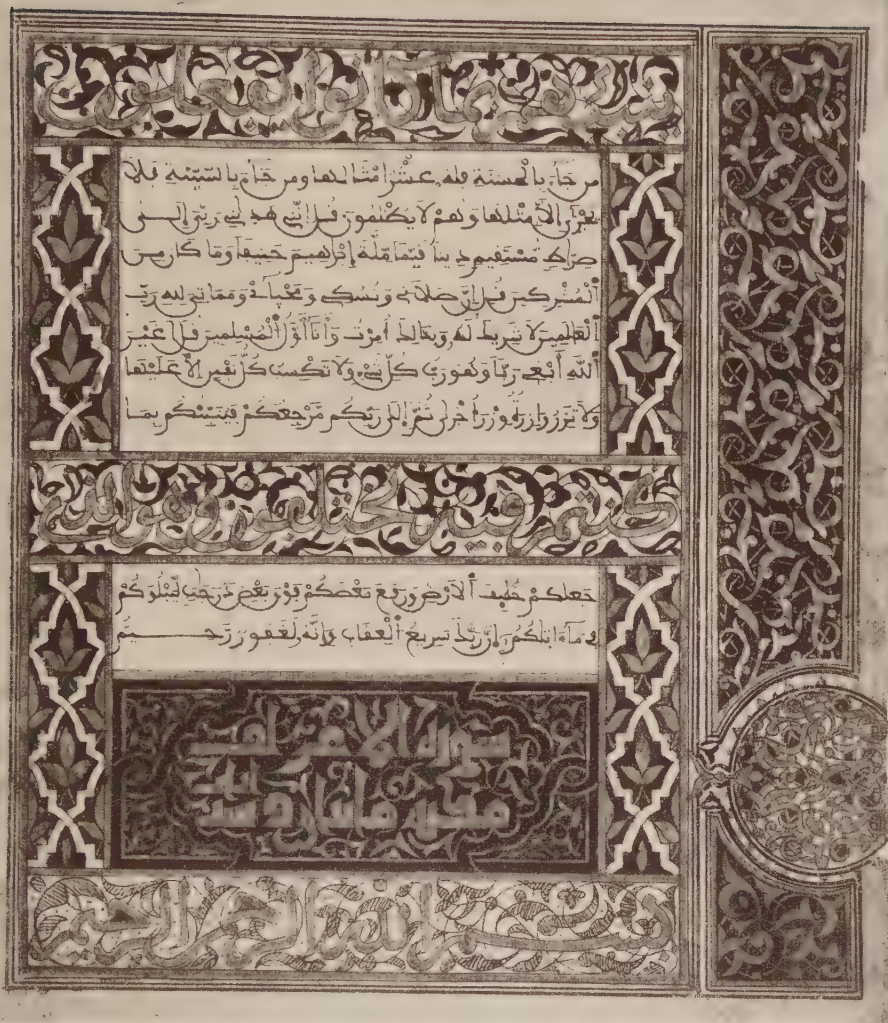 ينبئهم بما كانوا يفعلون
من جاء بالحسنة فله عشر أمثالها ومن جاء بالسيئة فلا
يجزى إلا مثلها وهم لا يظلمون قل إنني هدىني ربي إلى
صرط مستقيم دينا قيما ملة إبرهيم حنيفا وما كان من
المشركين قل إن صلاتي ونسكي ومحياي ومماتي لله رب
العلمين لا شريك له وبذلك أمرت وأنا أول المسلمين قل أغير
الله أبغي ربا وهو رب كل شيء ولا تكسب كل نفس إلا عليها
ولا تزر وازرة وزر أخرى ثم إلى ربكم مرجعكم فينبئكم بما
كنتم فيه تختلفون وهو الذي
جعلكم خلئف الأرض ورفع بعضكم فوق بعض درجت ليبلوكم
في ما ءاتىكم إن ربك سريع العقاب وإنه لغفور رحيم
سورة الأعراف
مكية مائتان وست آية
بسم الله الرحمن الرحيم